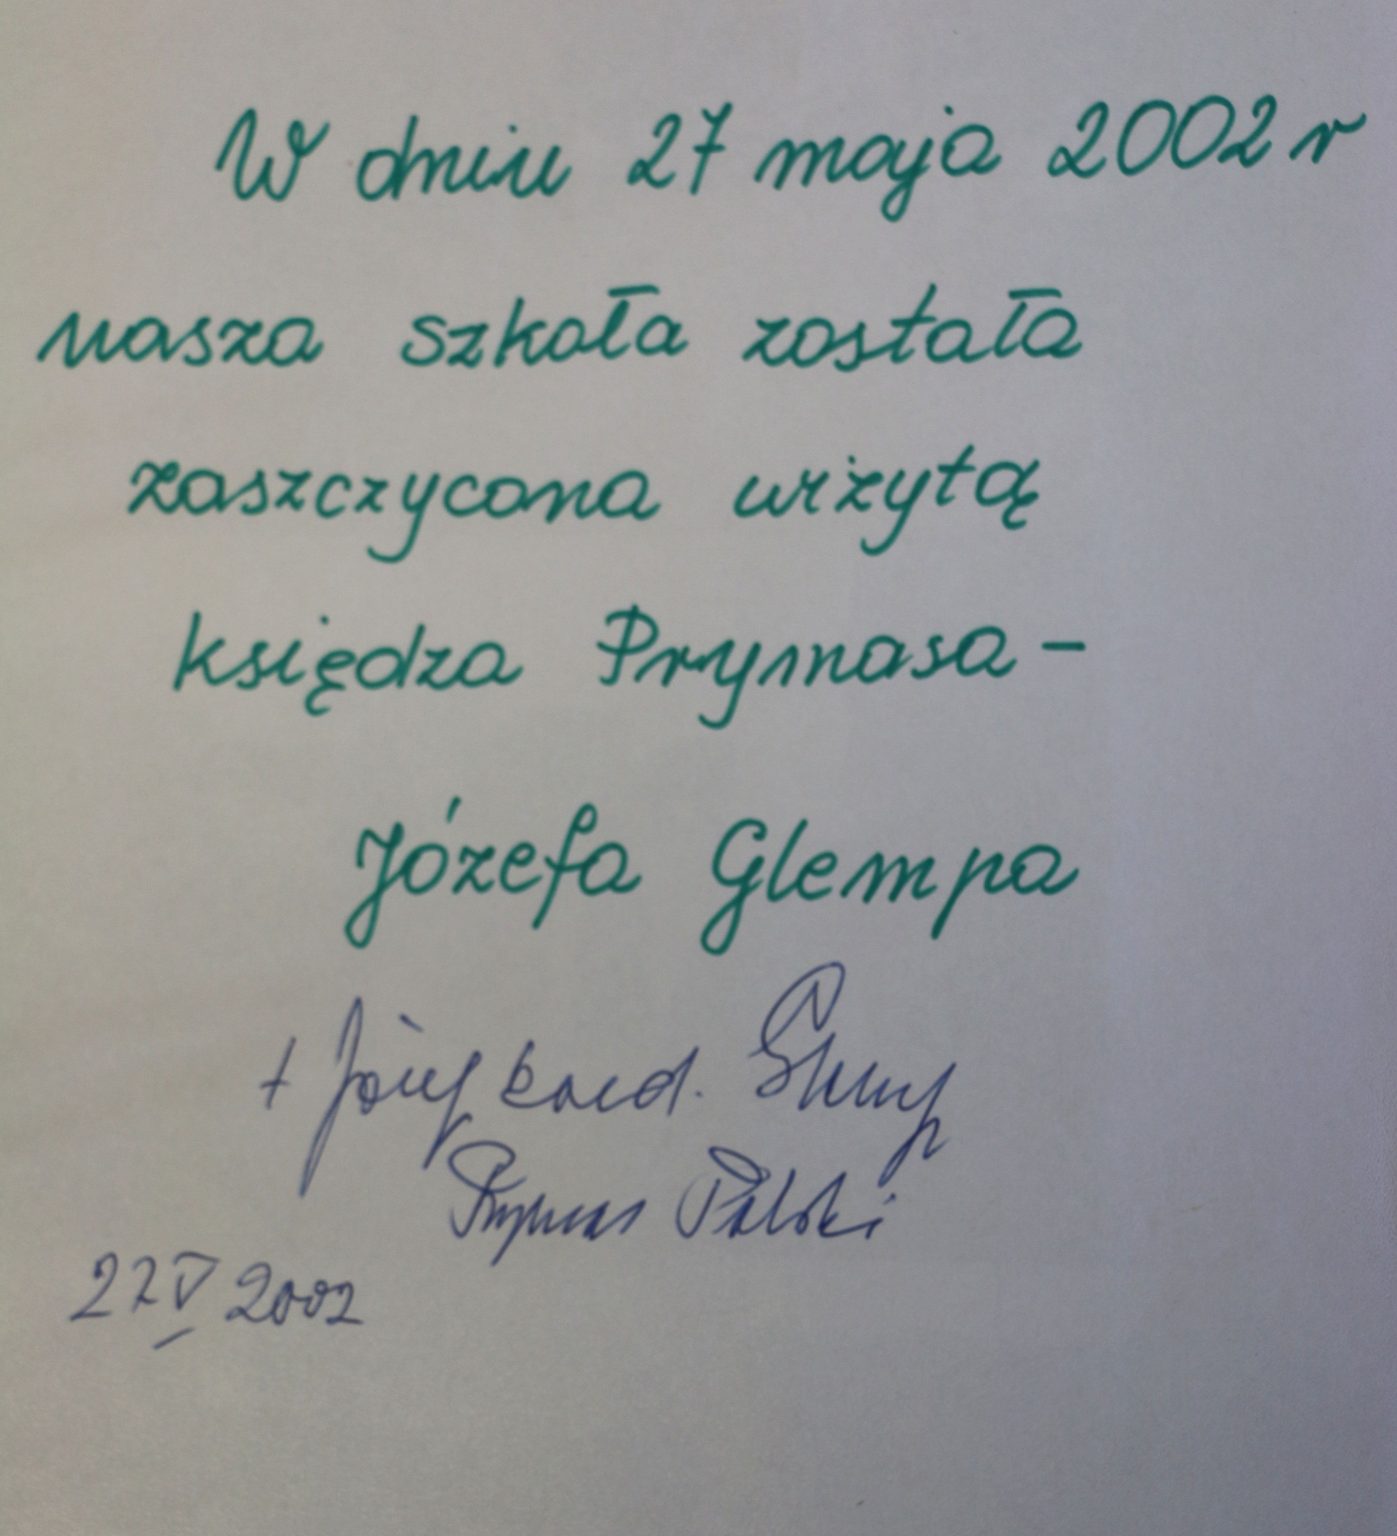 W dniu 27 maja 2002 r
nasza szkoła została
zaszczycona wizytą
księdza Prymasa -
Józefa Glempa
+ Józef kard. Glemp
Prymas Polski
22 V 2002